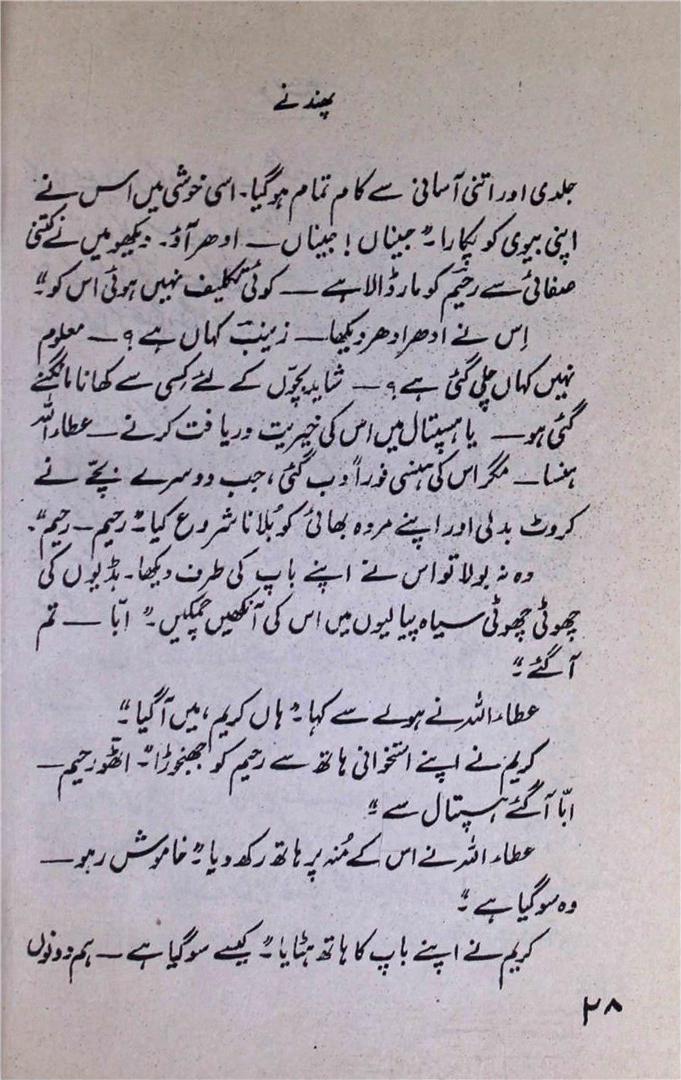 پھندنے
جلدی اور اتنی آسانی سے کام تمام ہو گیا۔ اسی خوشی میں اس نے
اپنی بیوی کو پکارا۔" جیناں! جیناں — ادھر آؤ۔ دیکھو میں نے کتنی
صفائی سے رحیم کو مار ڈالا ہے — کوئی تکلیف نہیں ہوئی اس کو۔"
اِس نے ادھر ادھر دیکھا — زینب کہاں ہے؟ — معلوم
نہیں کہاں چلی گئی ہے؟ — شاید بچّوں کے لئے کسِی سے کھانا مانگنے
گئی ہو — یا ہسپتال میں اس کی خیریت دریافت کرنے — عطاء اللہ
ہنسا — مگر اس کی ہنسی فوراً دب گئی، جب دوسرے بچّے نے
کروٹ بدلی اور اپنے مردہ بھائی کو بُلانا شروع کیا۔" رحیم — رحیم"۔
وہ نہ بولا تو اس نے اپنے باپ کی طرف دیکھا۔ ہڈیوں کی
چھوٹی چھوٹی سیاہ پیالیوں میں اس کی آنکھیں چمکیں۔" ابّا — تم
آ گئے۔"
عطاء اللہ نے ہولے سے کہا۔" ہاں کریم، میں آ گیا۔"
کریم نے اپنے استخوانی ہاتھ سے رحیم کو جھنجوڑا۔" اٹھو رحیم —
ابّا آ گئے ہسپتال سے۔"
عطاء اللہ نے اس کے مُنہ پر ہاتھ رکھ دیا۔" خاموش رہو —
وہ سو گیا ہے۔"
کریم نے اپنے باپ کا ہاتھ ہٹایا۔" کیسے سو گیا ہے — ہم دونوں
۲۸